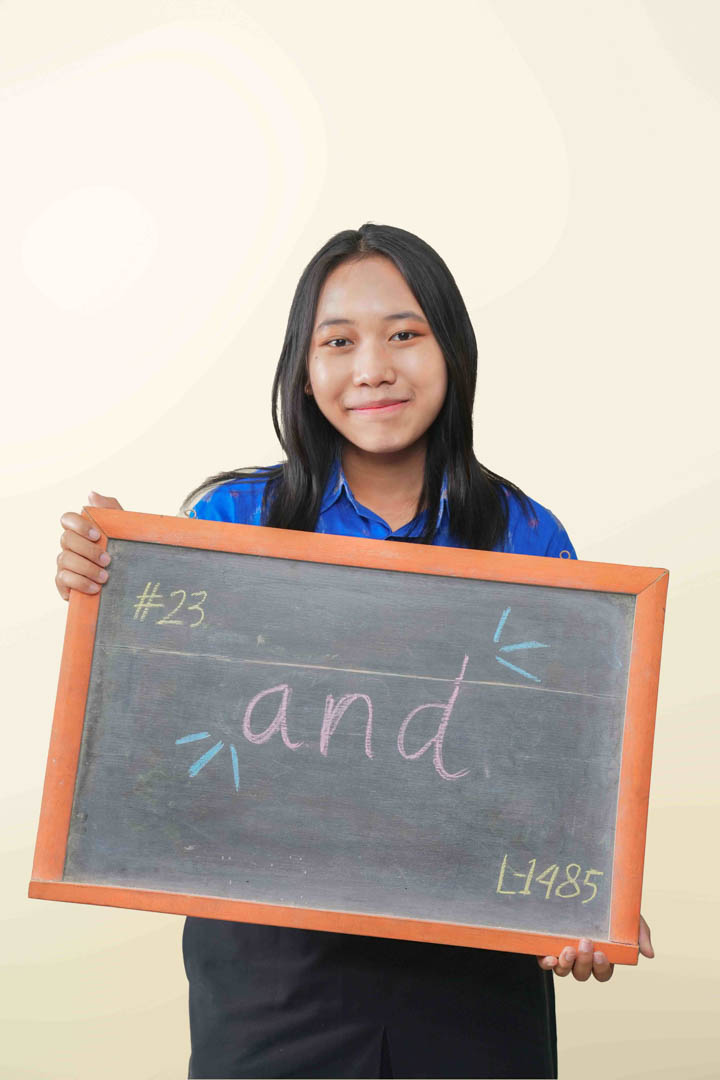 #23
and
L-1485